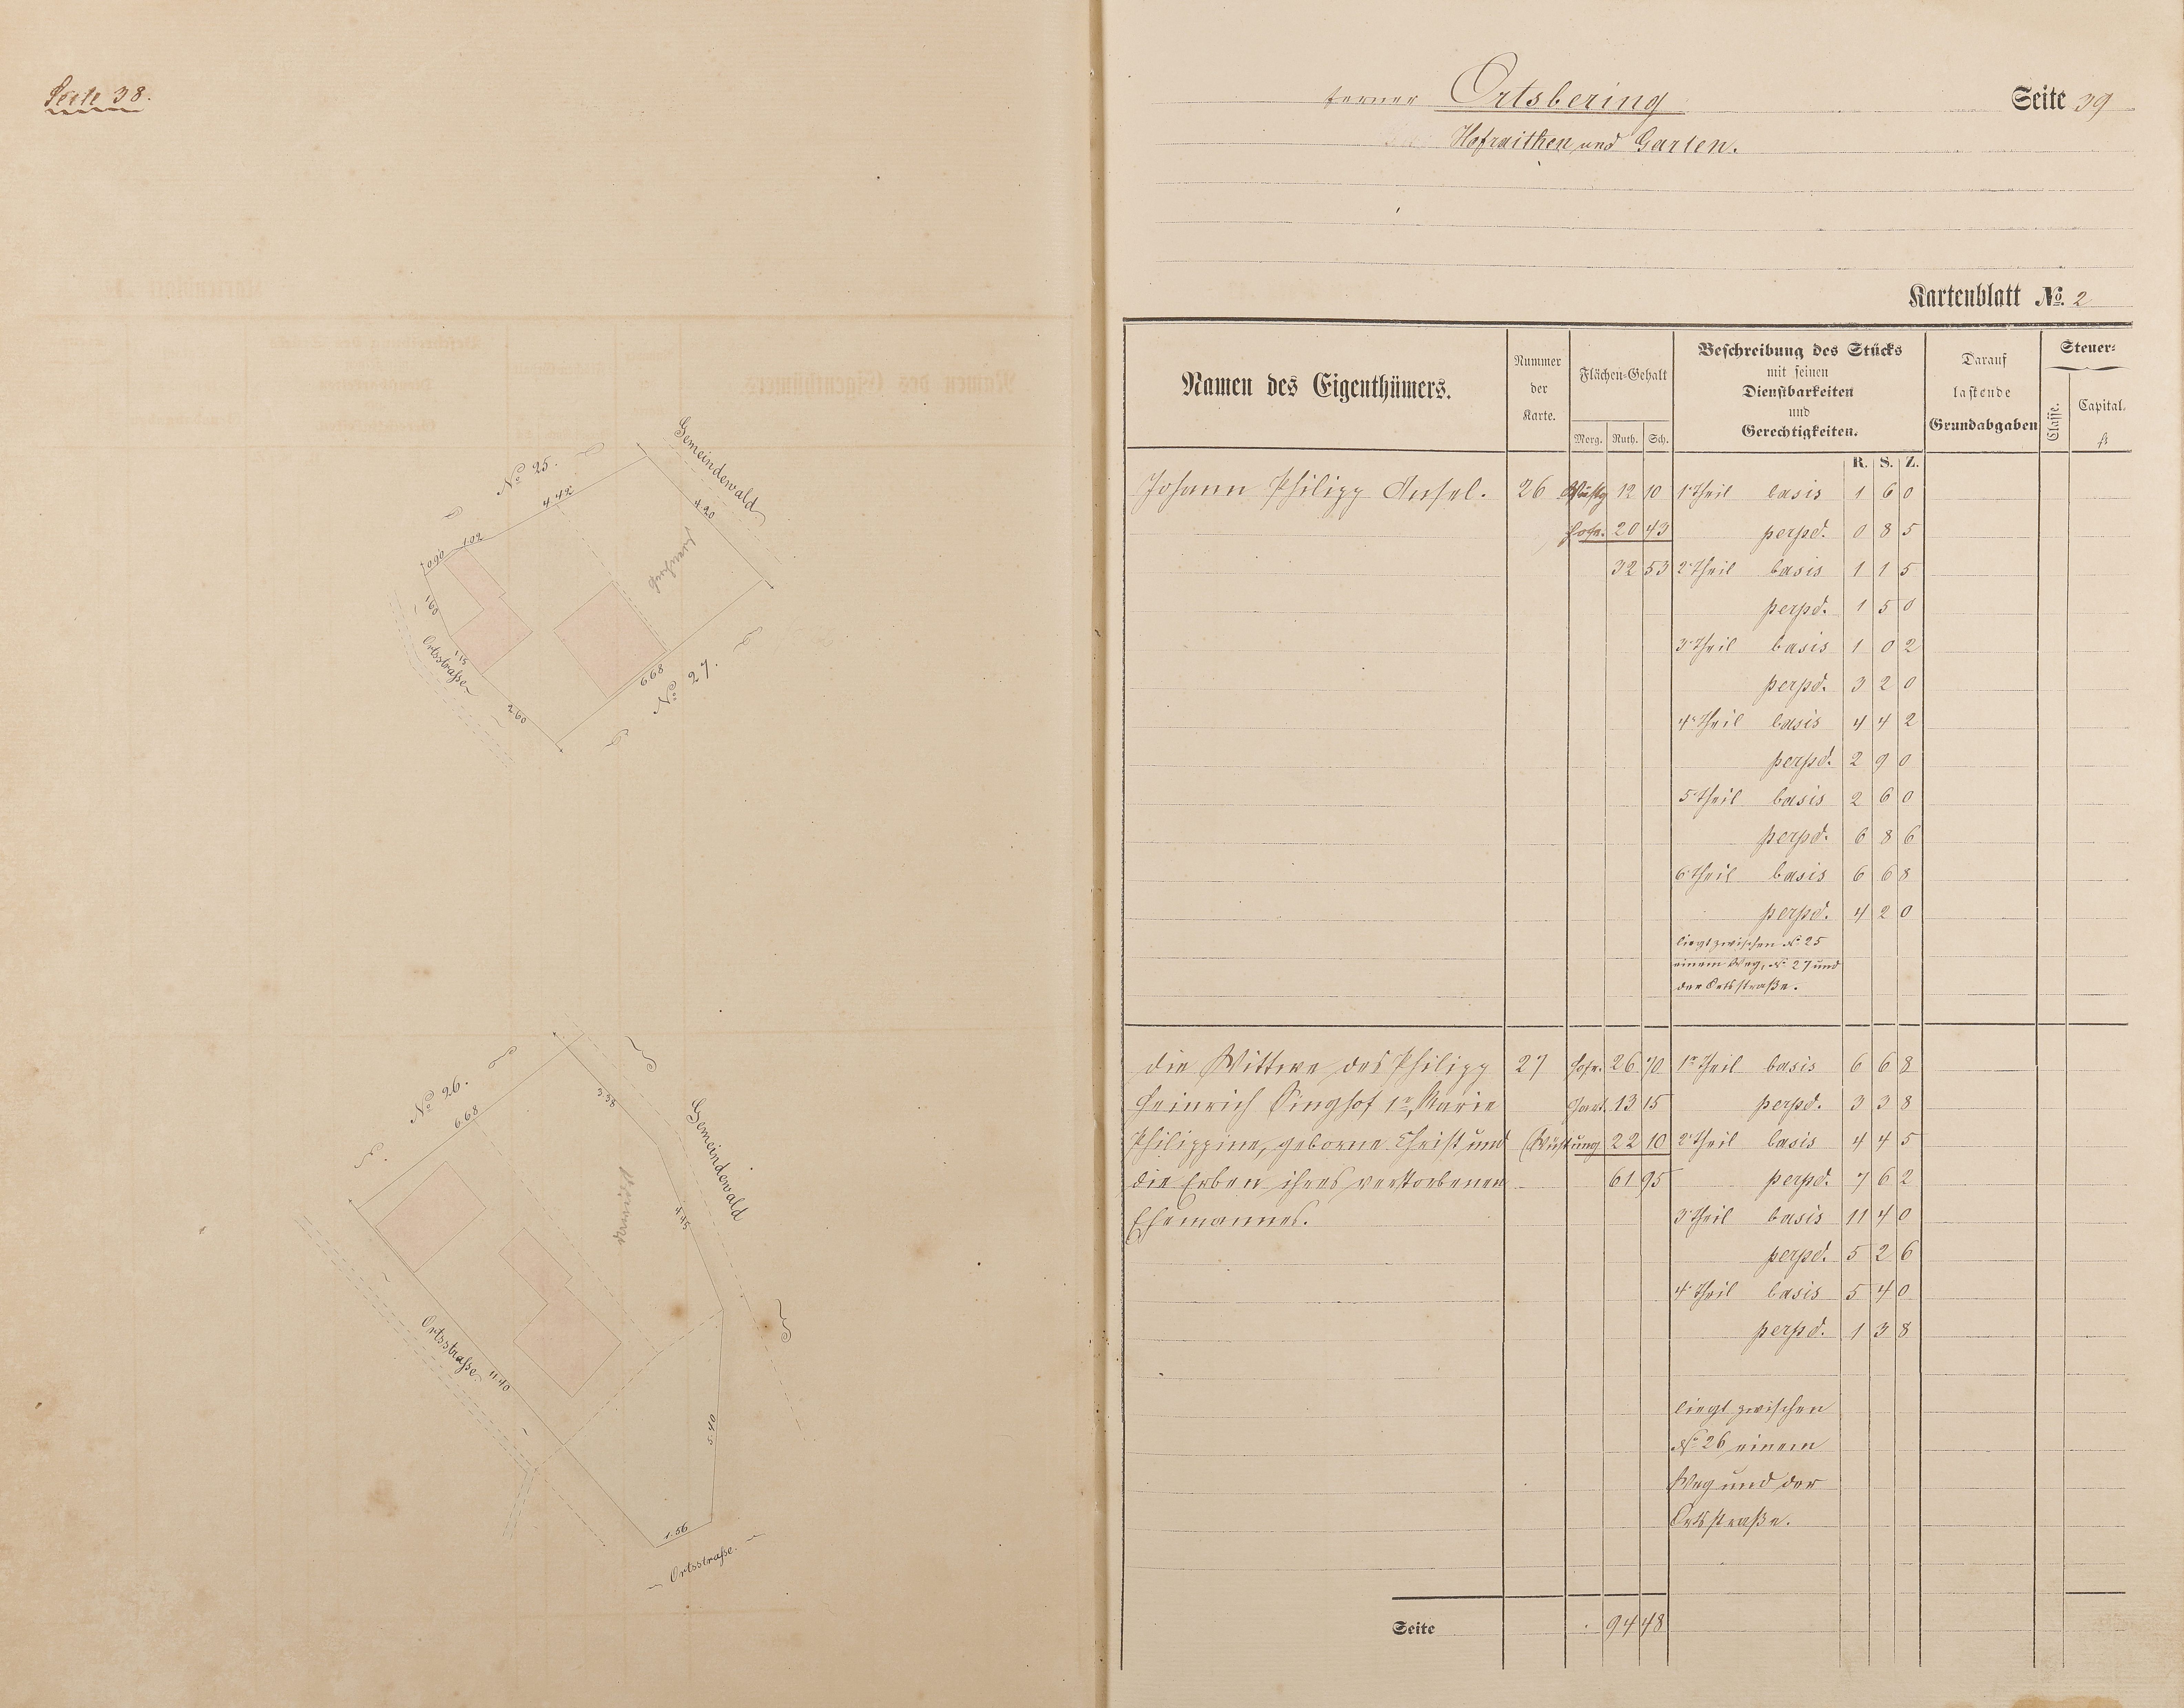 Seite 38.
No 25.
Gemeindewald
4.42
4.20
1.02
0.90
1.60
Ortsstraße
1.15
2.60
6.68
No 27.
No 26.
6.68
3.38
Gemeindewald
4.45
Wüstung
Ortsstraße
11.40
5.40
1.56
Ortsstraße.
ferner Ortsbering
Seite 39
Hofraithen und Garten.
Kartenblatt No. 2
Namen des Eigenthümers.
Nummer der Karte.
Flächen-Gehalt
Morg. Ruth. Sch.
Beschreibung des Stücks
mit seinen
Dienstbarkeiten
und
Gerechtigkeiten.
Darauf
lastende
Grundabgaben
Steuer-
Classe.
Capital.
fl
R. S. Z.
Johann Philipp Insel. 26 Wüstg 12 10 1r Theil basis 1 6 0
Hofr. 20 43 perpd. 0 8 5
32 53 2r Theil basis 1 1 5
perpd. 1 5 0
3r Theil basis 1 0 2
perpd. 3 2 0
4r Theil basis 4 4 2
perpd. 2 9 0
5r Theil basis 2 6 0
perpd. 6 8 6
6r Theil basis 6 6 8
perpd. 4 2 0
liegt zwischen No 25
einem Weg, No 27 und
der Ortsstraße.
die Wittwe des Philipp 27 Hofr. 26 70 1r Theil basis 6 6 8
Heinrich Singhof 1r, Marie Gart. 13 15 perpd. 3 3 8
Philippine, geborne Christ und (Wüstung 22 10 2r Theil basis 4 4 5
die Erben ihres verstorbenen 61 95 perpd. 7 6 2
Ehemannes. 3r Theil basis 11 4 0
perpd. 5 2 6
4r Theil basis 5 4 0
perpd. 1 3 8
liegt zwischen
No 26 einem
Weg und der
Ortsstraße.
Seite 94 48